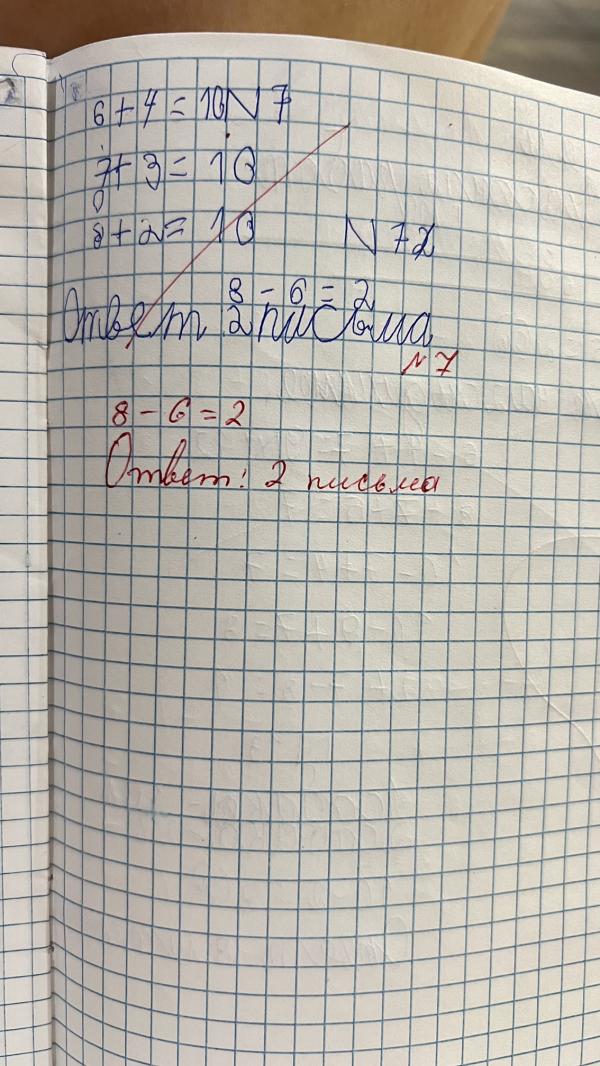 6+4=10 N7
7+3=10
8+2=10 N7
8-6=2
Ответ 2 письма
N7
8-6=2
Ответ: 2 письма